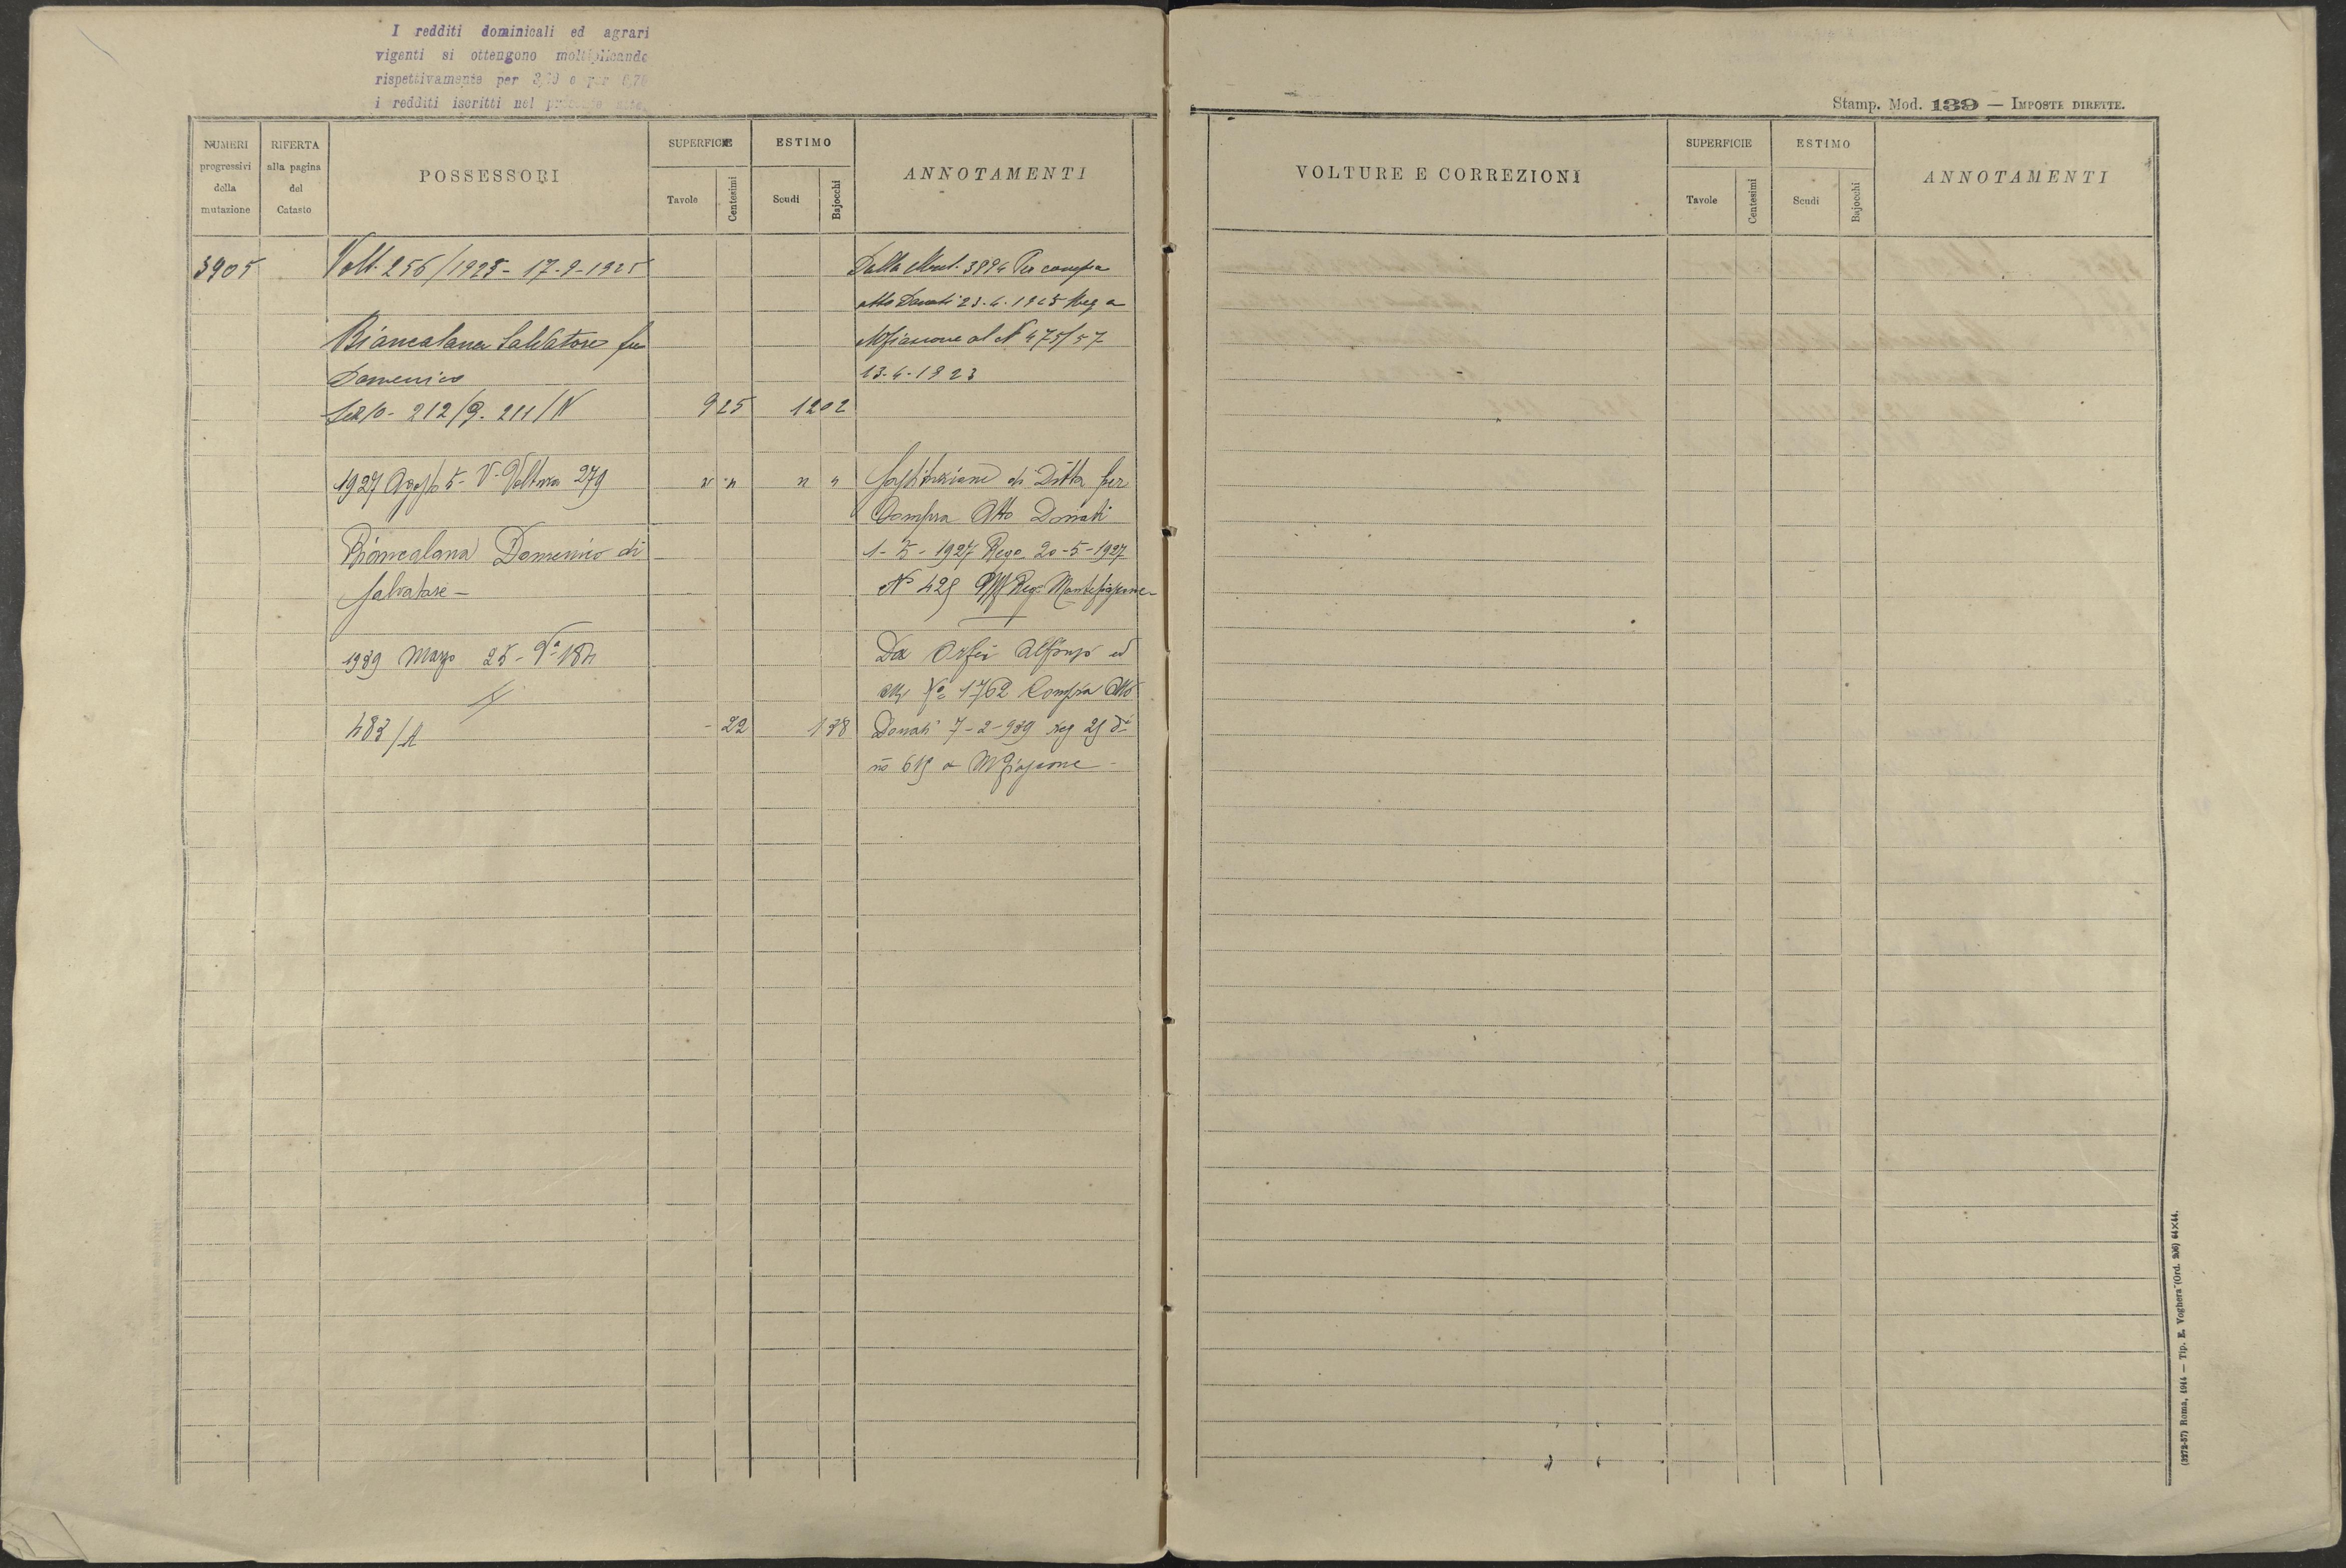 I redditi dominicali ed agrari
vigenti si ottengono moltiplicando
rispettivamente per 3,20 o per
i redditi iscritti nel presente
NUMERI progressivi della mutazione
RIFERTA alla pagina del Catasto
POSSESSORI
SUPERFICIE
Tavole
Centesimi
ESTIMO
Scudi
Bajocchi
ANNOTAMENTI
3905 Volt. 256/1925 - 17-9-1925 Dalla Mut. 3894 Per compra
atto Donati 23-4-1925 Reg a
Biancalana Salvatore fu Mfiascone al N 475/57
Domenico 13-4-1923
212/9. 211/N 9 25 12 02
1927 Agosto 5 - V. Voltura 279 " " " " Sostituzione di Ditta per
Compra Atto Donati
Biancalana Domenico di 1-5-1927 Rego 20-5-1927
Salvatore - N° 429 Uff Reg. Montefiascone
1939 Marzo 25 - Va 184 Da Orfei Alfonso ed
1762 Compra Atto
483/A - 22 1 38 Donati 7-2-939 reg 25 do
no 619 a Mfiascone -
Stamp. Mod. 139 — IMPOSTE DIRETTE.
VOLTURE E CORREZIONI
SUPERFICIE
Tavole
Centesimi
ESTIMO
Scudi
Bajocchi
ANNOTAMENTI
(3272-57) Roma, 1914 — Tip. E. Voghera (Ord. 206) 64×44.